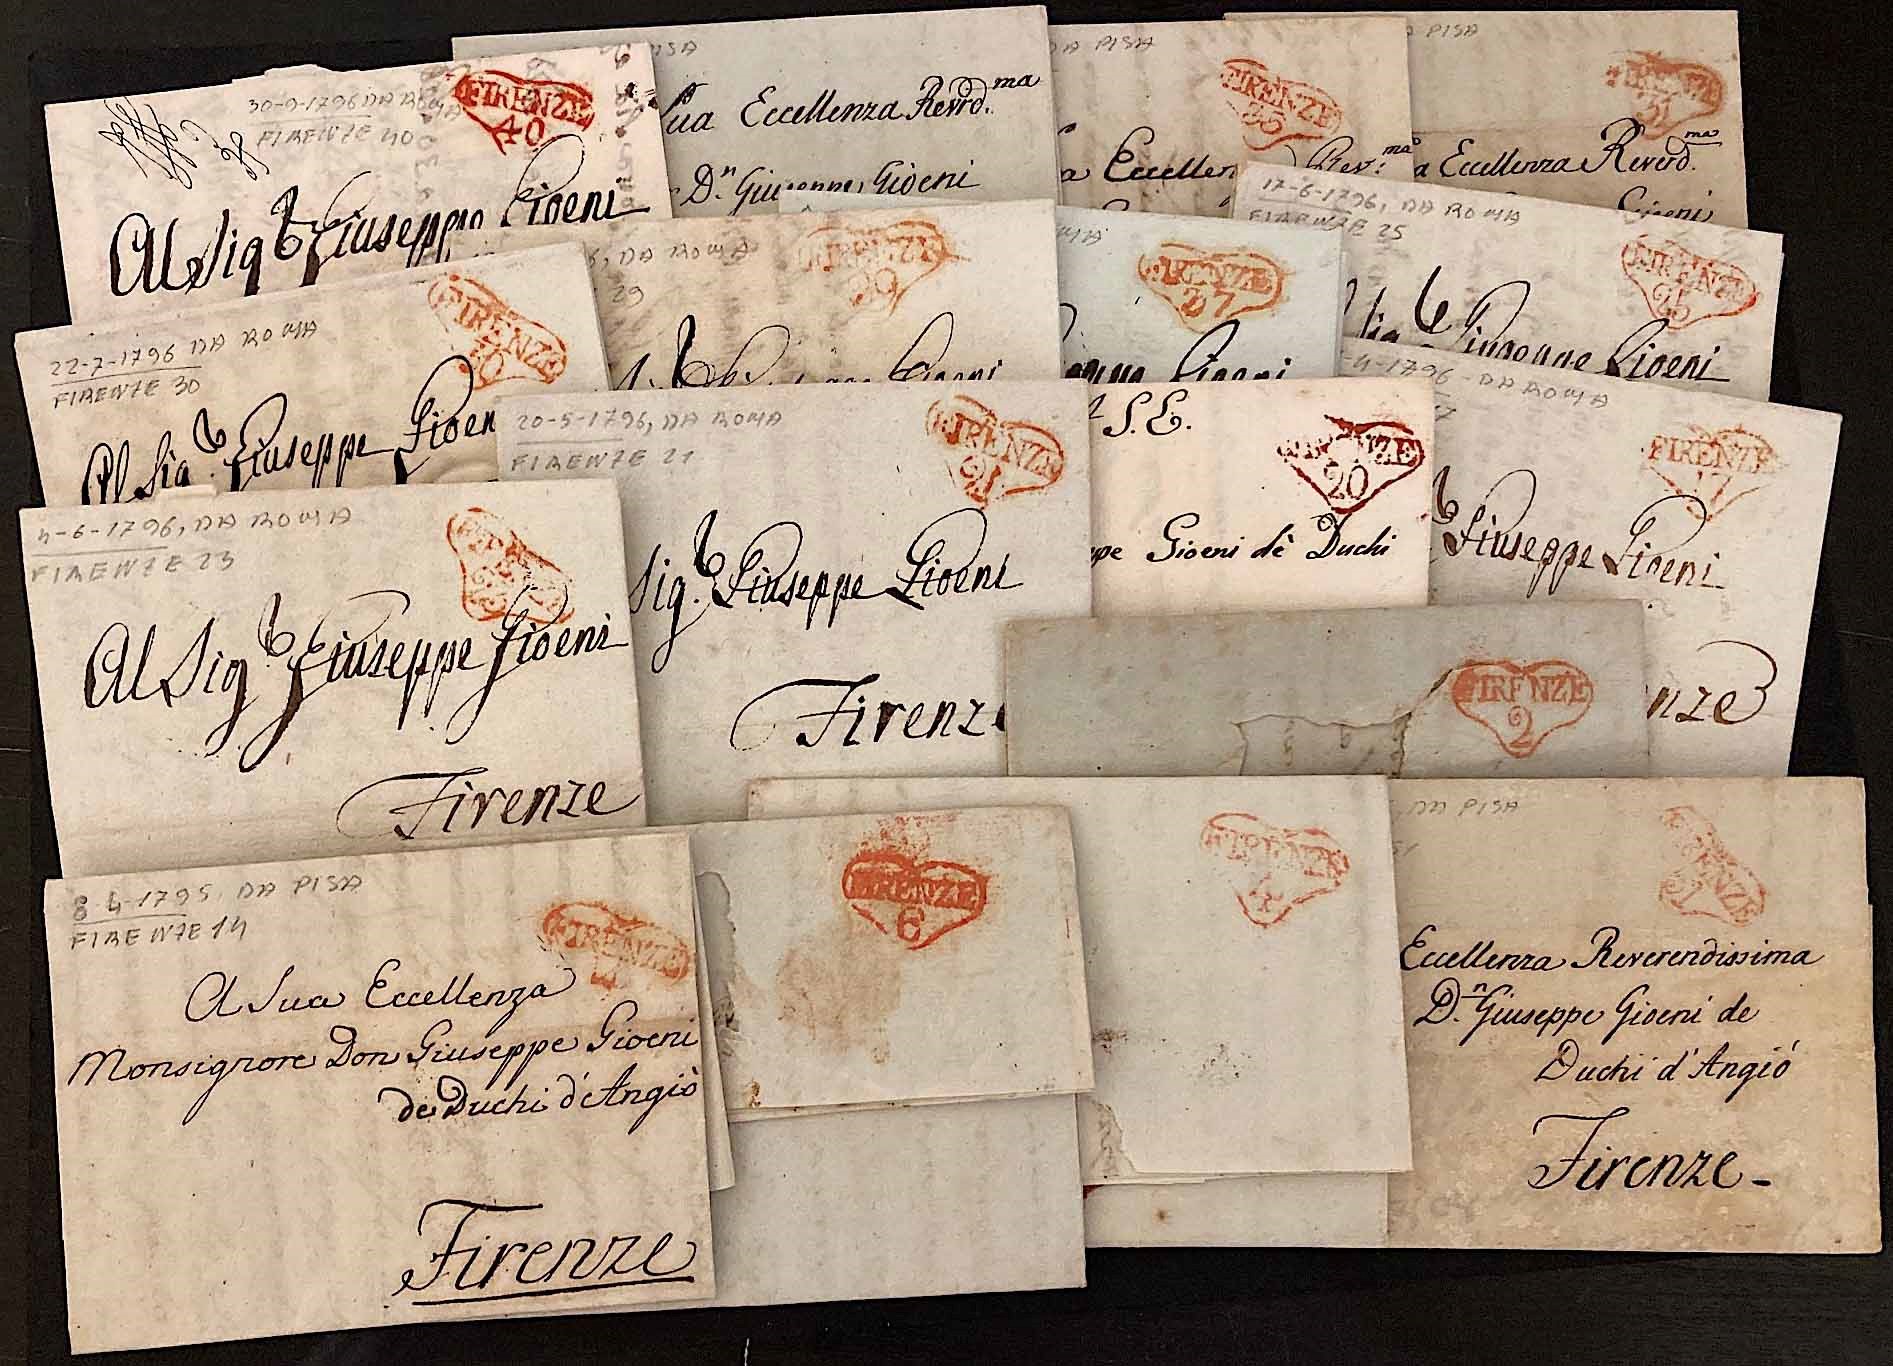 30-9-1796 DA ROMA
FIRENZE 40
FIRENZE
40
Al Sig.re Giuseppe Gioeni
PISA
Sua Eccellenza Revrd.ma
D.n Giuseppe Gioeni
DA PISA
FIRENZE
35
Eccellen
Rev.ma
PISA
FIRENZE
31
a Eccellenza Reverd.ma
Gioeni
22-7-1796 DA ROMA
FIRENZE 30
FIRENZE
30
Al Sig.re Giuseppe Gioen
DA ROMA
29
FIRENZE
Gioeni
FIRENZE
27
Gioeni
17-6-1796, DA ROMA
FIRENZE 25
FIRENZE
25
Giuseppe Gioeni
4-6-1796, DA ROMA
FIRENZE 23
FIRENZE
23
Al Sig.re Giuseppe Gioeni
Firenze
20-5-1796, DA ROMA
FIRENZE 21
FIRENZE
21
Sig.re Giuseppe Gioeni
Firenze
S. E.
FIRENZE
20
ppe Gioeni dè Duchi
-4-1796 - DA ROMA
17
FIRENZE
17
Giuseppe Gioeni
nze
FIRENZE
2
8-4-1795, DA PISA
FIRENZE 14
FIRENZE
14
A Sua Eccellenza
Monsignore Don Giuseppe Gioeni
de Duchi d'Angiò
Firenze
FIRENZE
6
FIRENZE
4
DA PISA
FIRENZE
Eccellenza Reverendissima
D.n Giuseppe Gioeni de
Duchi d'Angiò
Firenze -